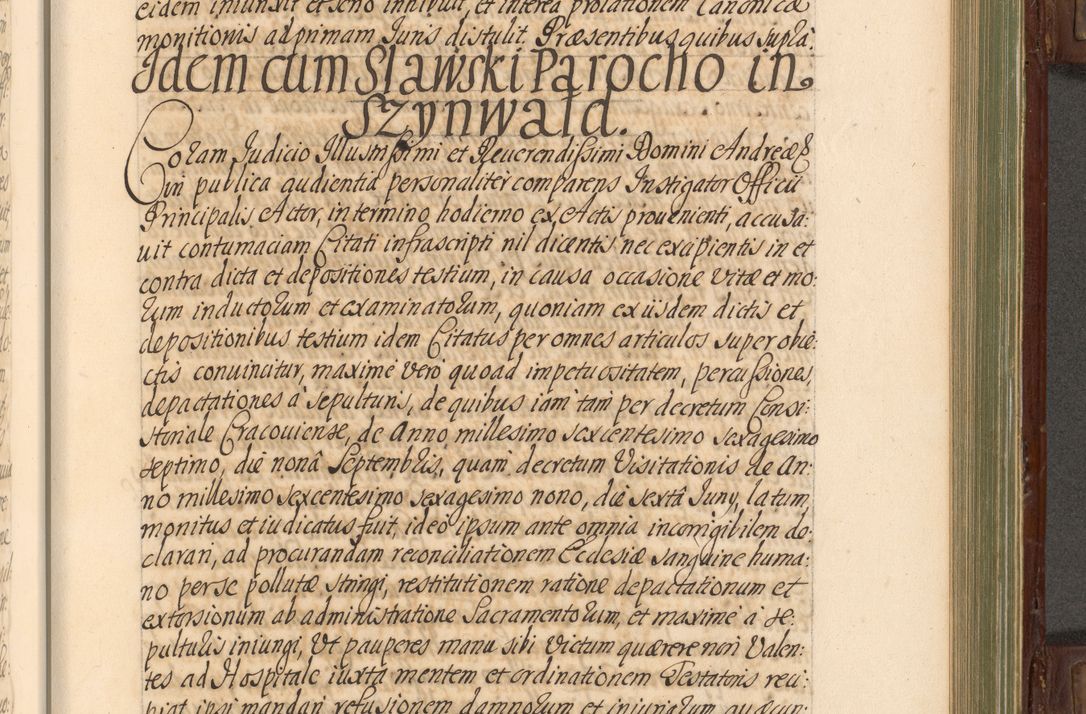 eidem iniunxit et serio inhibuit, et interea prolationem Canonicæ
monitionis ad primam Juris distulit. Præsentibus quibus supra.
Idem cum Slawski Parocho in
Szynwald.
Coram Judicio Illustrissimi et Reuerendissimi Domini Andreæ &
in publica audientia personaliter comparens Instigator Officii
Principalis Actor, in termino hodierno ex Actis prouenienti, accusa:
uit contumaciam Citati infrascripti nil dicentis nec excipientis in et
contra dicta et depositiones testium, in causa occasione vitæ et mo:
rum inductorum et examinatorum, quoniam ex iisdem dictis et
depositionibus testium idem Citatus per omnes articulos super obie:
ctis conuincitur, maxime vero quoad impetuositatem, percussiones,
depactationes a sepulturis, de quibus iam tam per decretum Consi:
storiale Cracouiense, de Anno millesimo sexcentesimo sexagesimo
septimo, die nonâ Septembris, quam decretum Visitationis de An:
no millesimo sexcentesimo sexagesimo nono, die sextâ Juny, latum,
monitus et iudicatus fuit, ideo ipsum ante omnia incorrigibilem de:
clarari, ad procurandam reconciliationem Ecclesiæ sanguine huma:
no per se pollutæ stringi, restitutionem ratione depactationum et
extorsionum ab administratione Sacramentorum, et maxime à se:
pulturis iniungi, Vt pauperes manu sibi Victum quærere non Valen:
tes ad Hospitale iuxta mentem et ordinationem Testatoris reci:
piat ipsi mandari refusionem damnorum et iniuriarum quæcun: